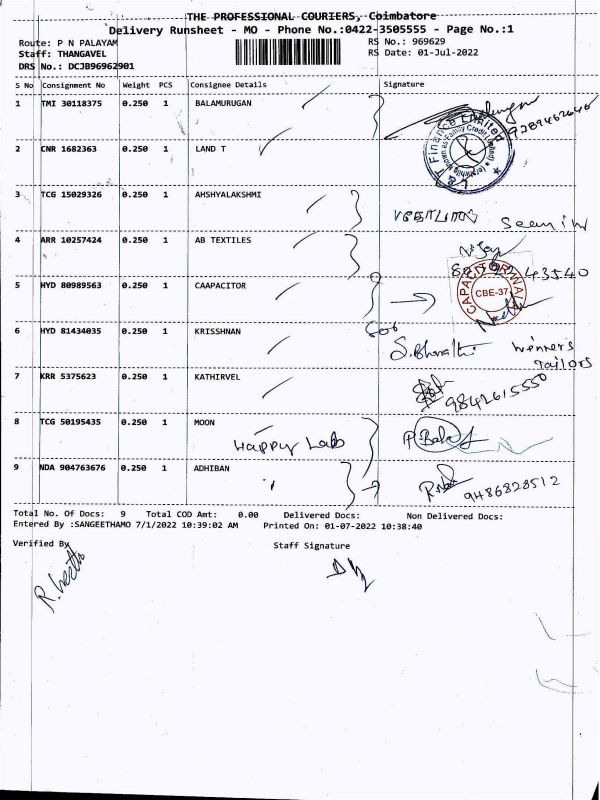 THE PROFESSIONAL COURIERS, Coimbatore
Delivery Runsheet - MO - Phone No.:0422-3505555 - Page No.:1
Route: P N PALAYAM RS No.: 969629
Staff: THANGAVEL RS Date: 01-Jul-2022
DRS No.: DCJB96962901
S No Consignment No Weight PCS Consignee Details Signature
1 TMI 30118375 0.250 1 BALAMURUGAN
9289462646
2 CNR 1682363 0.250 1 LAND T
3 TCG 15029326 0.250 1 AHSHYALAKSHMI
4 ARR 10257424 0.250 1 AB TEXTILES
43540
5 HYD 80989563 0.250 1 CAAPACITOR
CBE-37
6 HYD 81434035 0.250 1 KRISSHNAN
S.Bharathi Winners
Tailors
7 KRR 5375623 0.250 1 KATHIRVEL
9842615550
8 TCG 50195435 0.250 1 MOON
Happy Lab
9 NDA 904763676 0.250 1 ADHIBAN
9486828512
Total No. Of Docs: 9 Total COD Amt: 0.00 Delivered Docs: Non Delivered Docs:
Entered By :SANGEETHAMO 7/1/2022 10:39:02 AM Printed On: 01-07-2022 10:38:40
Verified By Staff Signature